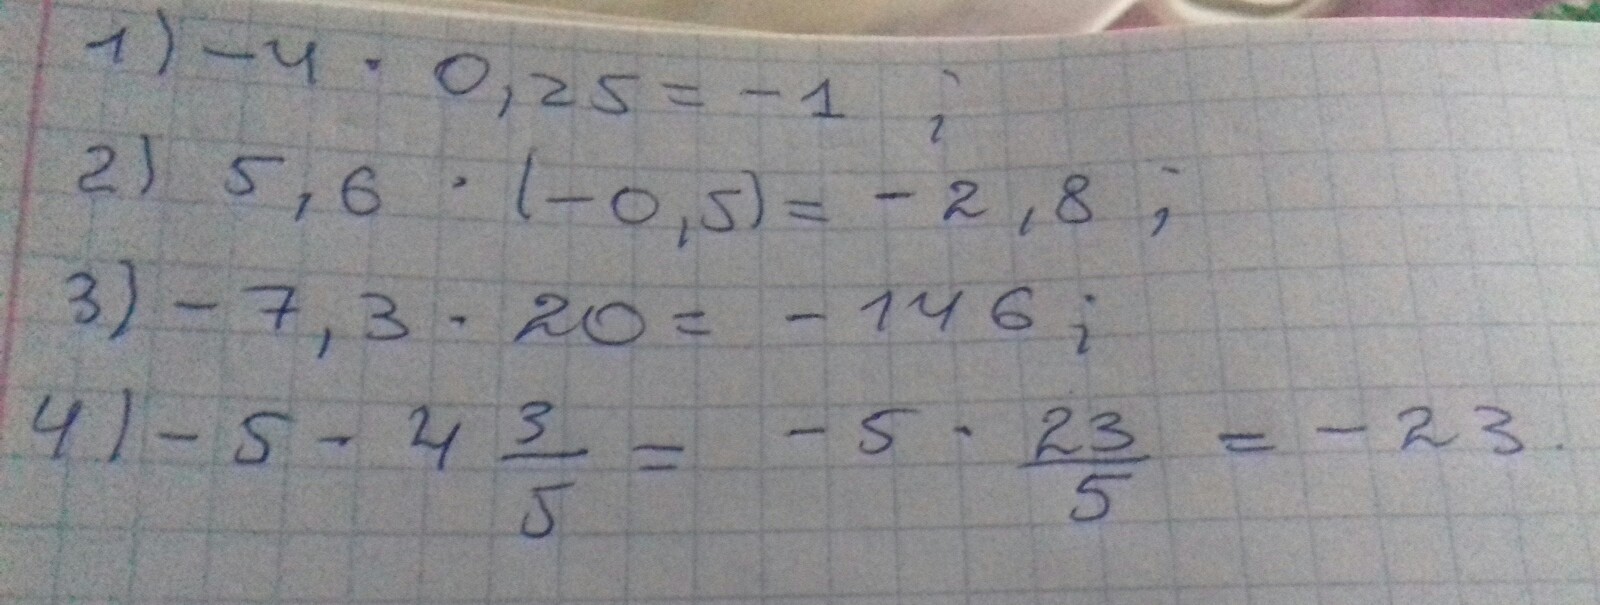 1) -4 · 0,25 = -1 ;
2) 5,6 · (-0,5) = -2,8 ;
3) -7,3 · 20 = -146 ;
4) -5 · 4 3/5 = -5 · 23/5 = -23.